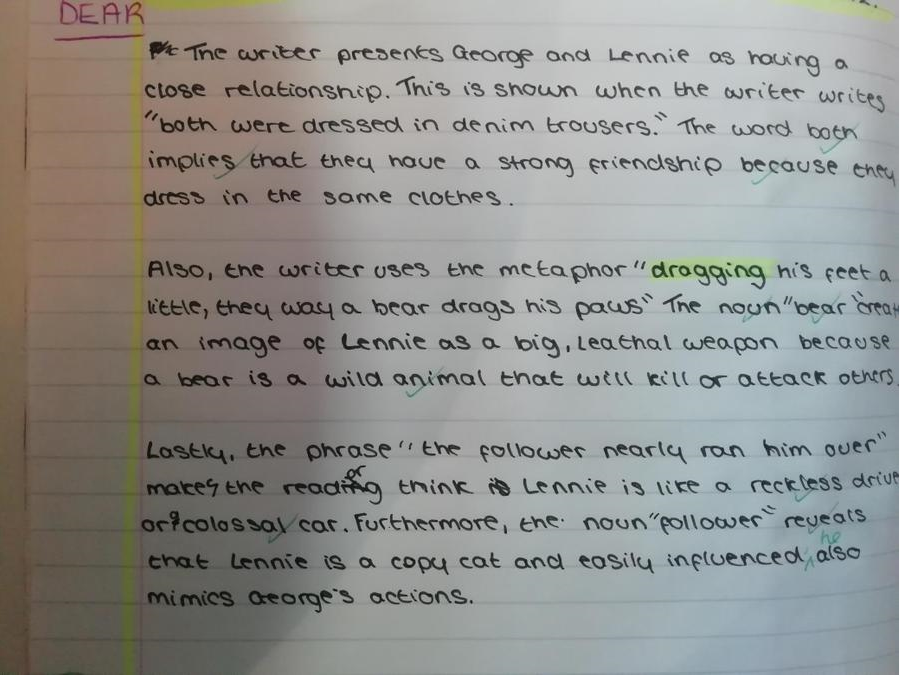 DEAR
The writer presents George and Lennie as having a
close relationship. This is shown when the writer writes
"both were dressed in denim trousers." The word both
implies that they have a strong friendship because they
dress in the same clothes.
Also, the writer uses the metaphor "dragging his feet a
little, they way a bear drags his paws" The noun "bear" creat
an image of Lennie as a big, leathal weapon because
a bear is a wild animal that will kill or attack others.
Lastly, the phrase "the follower nearly ran him over"
makes the reader think Lennie is like a reckless drive
or colossal car. Furthermore, the noun "follower" reveals
that Lennie is a copy cat and easily influenced, he also
mimics George's actions.